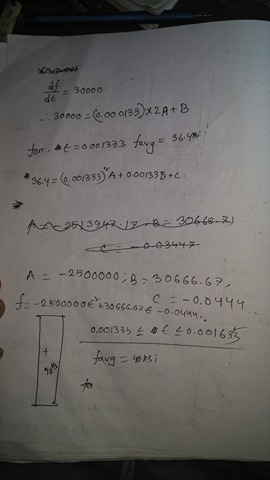 df/dϵ = 30000
∴ 30000 = (0.000133) × 2A + B
for. ϵ = 0.001333 favg = 36.4 ksi
36.4 = (0.001333)² A + 0.00133B + C.
A = -2513947.17, B = 30668.71
C = -0.03447
A = -2500000, B = 30666.67,
C = -0.0444
f = -2500000ϵ² + 30666.67ϵ - 0.0444.
0.001333 ≤ ϵ ≤ 0.001633
+
favg = 40 ksi
fo